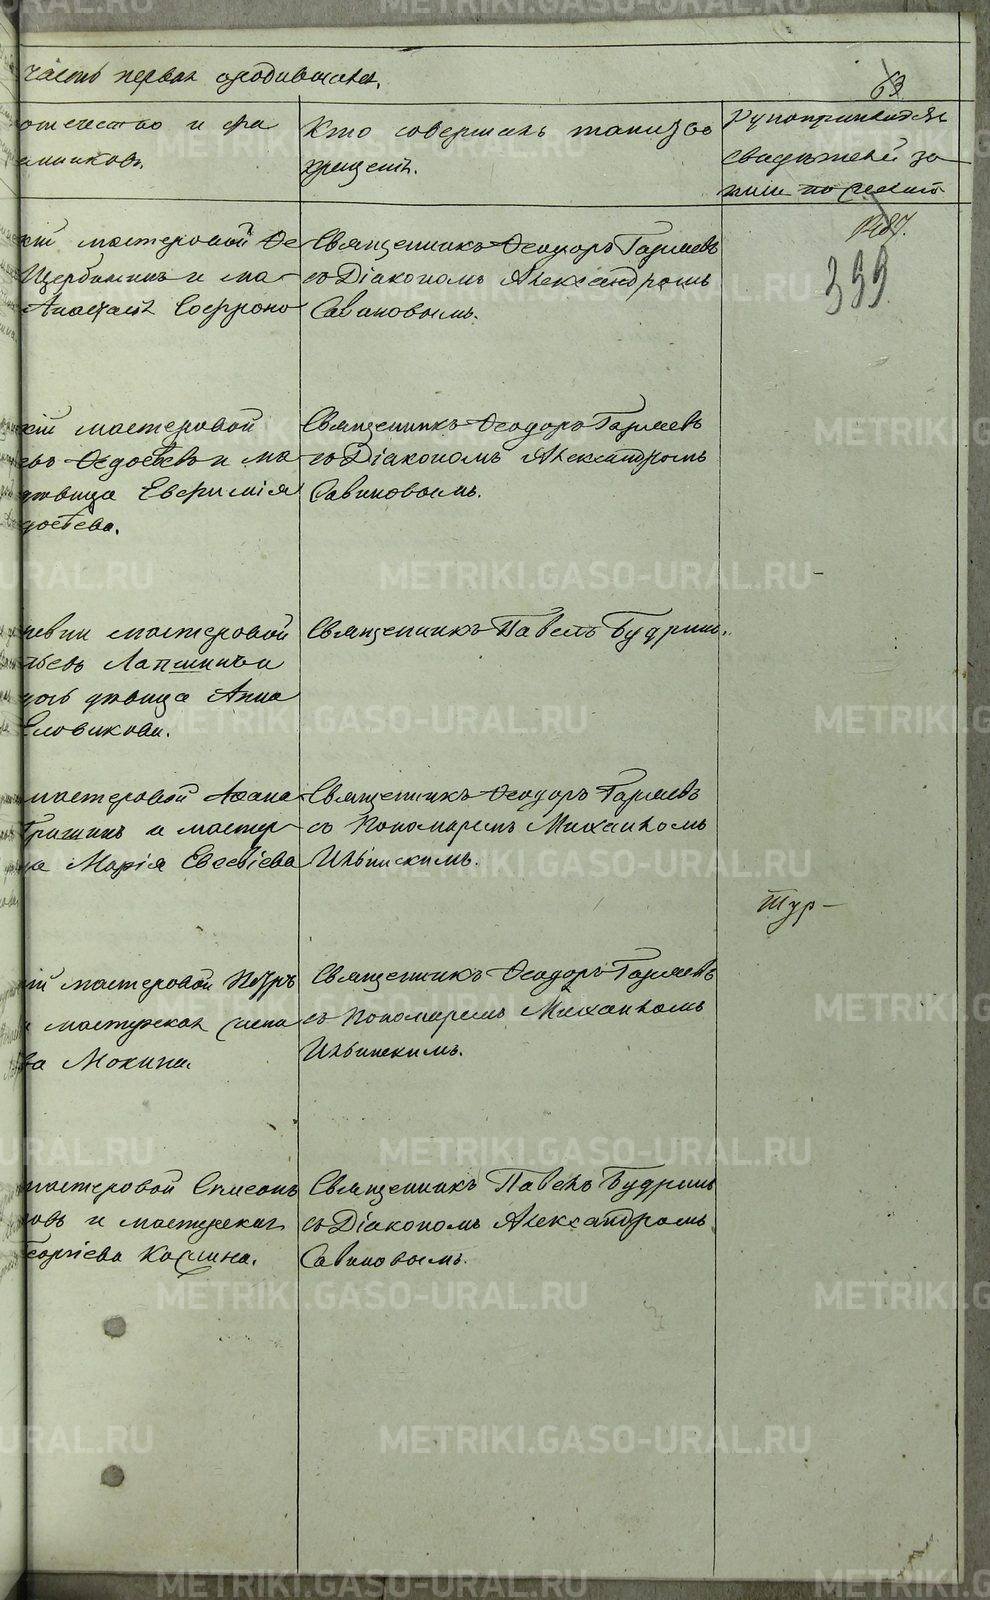 часть первая о родившихся.
63
отечество и фа
мниковъ.
Кто совершалъ таинство
крещенія.
Рукоприкладство
свидѣтелей за
писи по желанію
1487.
399
кій мастеровой Ѳе
Щербининъ и ма
Анастасія Софроно
Священникъ Ѳеодоръ Гаряевъ
съ Діакономъ Александромъ
Савиновымъ.
кій мастеровой
евъ Ѳедосѣевъ и ма
дѣвица Евфимія
досѣева.
Священникъ Ѳеодоръ Гаряевъ
съ Діакономъ Александромъ
Савиновымъ.
мастеровой
тьевъ Лапшинъ и
дѣвица Анна
Еловикова.
Священникъ Павелъ Будринъ.
мастеровой Аѳана
Гришинъ и мастер
Марія Евсевіева
Священникъ Ѳеодоръ Гаряевъ
съ Пономаремъ Михаиломъ
Ильинскимъ.
Тур
кій мастеровой Петръ
мастерская
ва Мокина.
Священникъ Ѳеодоръ Гаряевъ
съ Пономаремъ Михаиломъ
Ильинскимъ.
мастеровой Симеонъ
овъ и мастерская
еоргіева Косина.
Священникъ Павелъ Будринъ
съ Діакономъ Александромъ
Савиновымъ.
METRIKI.GASO-URAL.RU